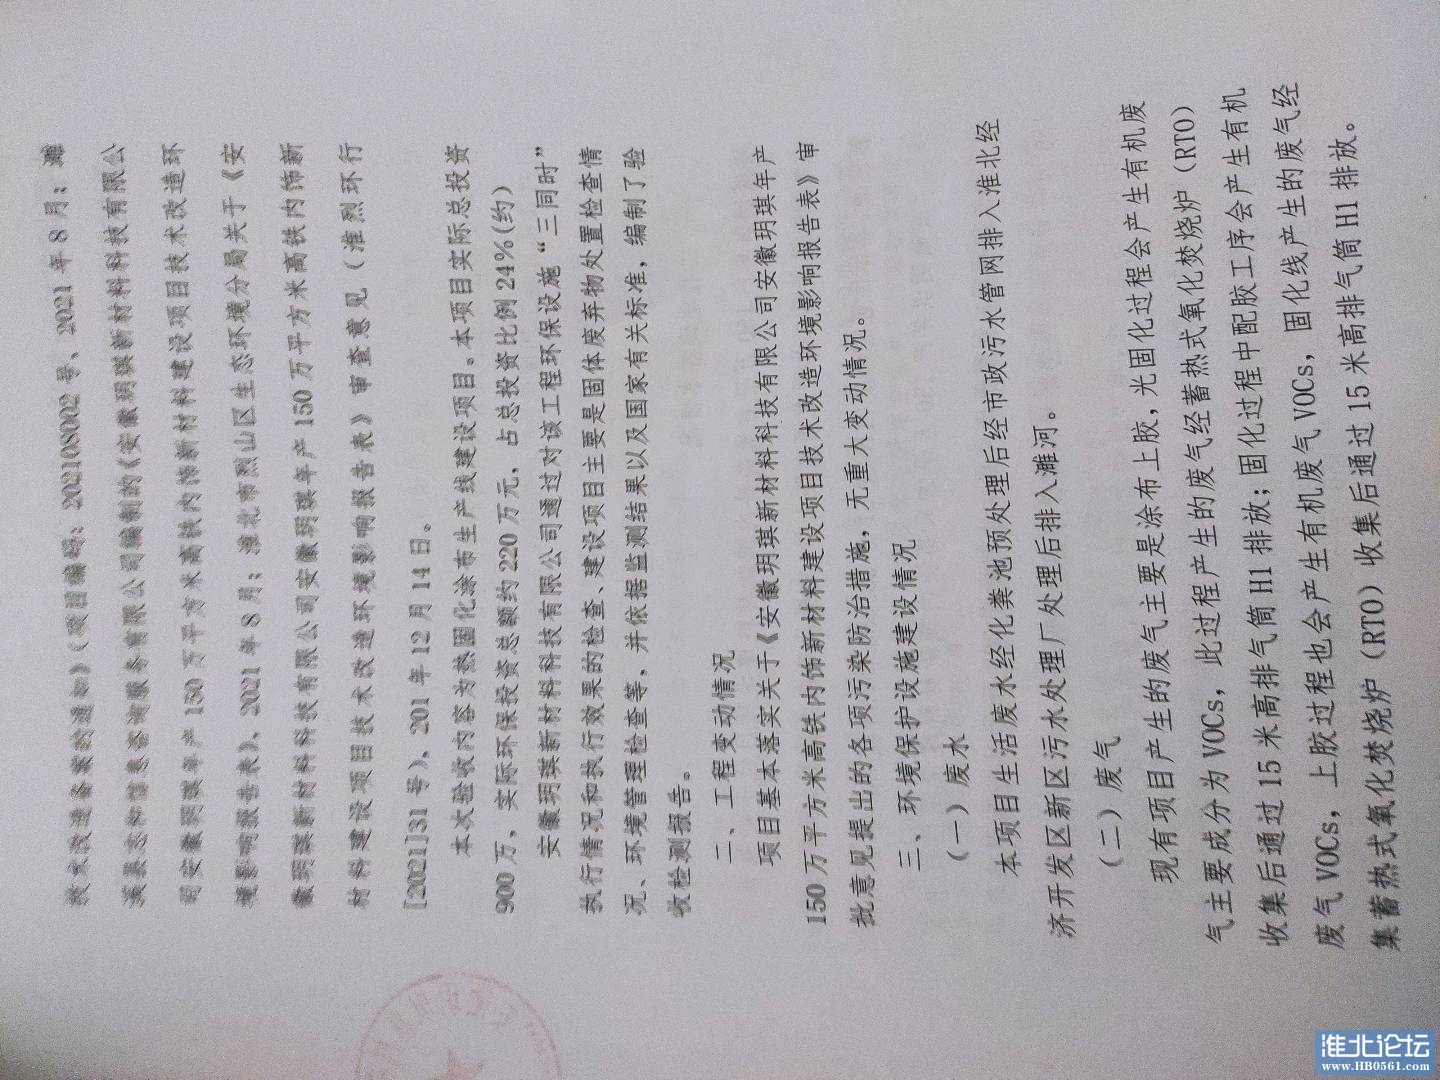 技术改造备案的通知》（项目编码：202108002 号、2021 年 8 月；濉
溪县志和信息咨询服务有限公司编制的《安徽玥琪新材料科技有限公
司安徽玥琪年产 150 万平方米高铁内饰新材料建设项目技术改造环
境影响报告表》、2021 年 8 月；淮北市烈山区生态环境分局关于《安
徽玥琪新材料科技有限公司安徽玥琪年产 150 万平方米高铁内饰新
材料建设项目技术改造环境影响报告表》审查意见（淮烈环行
[2021]31 号）、201 年 12 月 14 日。
本次验收内容为热固化涂布生产线建设项目。本项目实际总投资
900 万，实际环保投资总额约 220 万元，占总投资比例 24%(约)
安徽玥琪新材料科技有限公司通过对该工程环保设施“三同时”
执行情况和执行效果的检查、建设项目主要是固体废弃物处置检查情
况、环境管理检查等，并依据监测结果以及国家有关标准，编制了验
收检测报告。
二、工程变动情况
项目基本落实关于《安徽玥琪新材料科技有限公司安徽玥琪年产
150 万平方米高铁内饰新材料建设项目技术改造环境影响报告表》审
批意见提出的各项污染防治措施，无重大变动情况。
三、环境保护设施建设情况
（一）废水
本项目生活废水经化粪池预处理后经市政污水管网排入淮北经
济开发区新区污水处理厂处理后排入濉河。
（二）废气
现有项目产生的废气主要是涂布上胶，光固化过程会产生有机废
气主要成分为 VOCs，此过程产生的废气经蓄热式氧化焚烧炉（RTO）
收集后通过 15 米高排气筒 H1 排放；固化过程中配胶工序会产生有机
废气 VOCs，上胶过程也会产生有机废气 VOCs，固化线产生的废气经
集蓄热式氧化焚烧炉（RTO）收集后通过 15 米高排气筒 H1 排放。
淮北论坛
www.HB0561.com